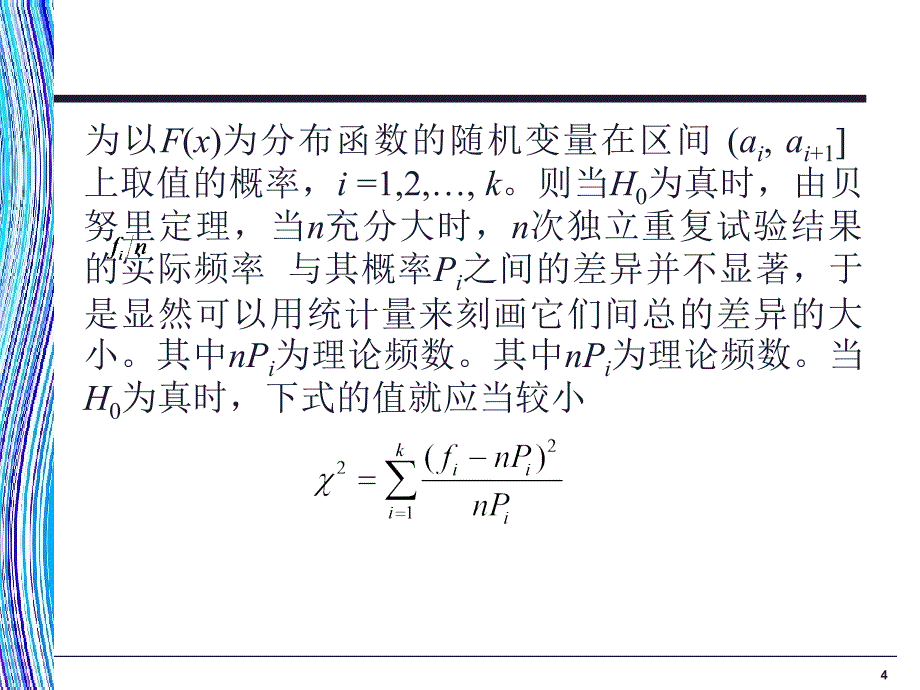 为以F(x)为分布函数的随机变量在区间 (a_i, a_{i+1}]
上取值的概率，i =1,2,…, k。则当H_0为真时，由贝
努里定理，当n充分大时，n次独立重复试验结果
f_i/n
的实际频率 与其概率P_i之间的差异并不显著，于
是显然可以用统计量来刻画它们间总的差异的大
小。其中nP_i为理论频数。其中nP_i为理论频数。当
H_0为真时，下式的值就应当较小
χ^2 = \sum_{i=1}^{k} \frac{(f_i - nP_i)^2}{nP_i}
4